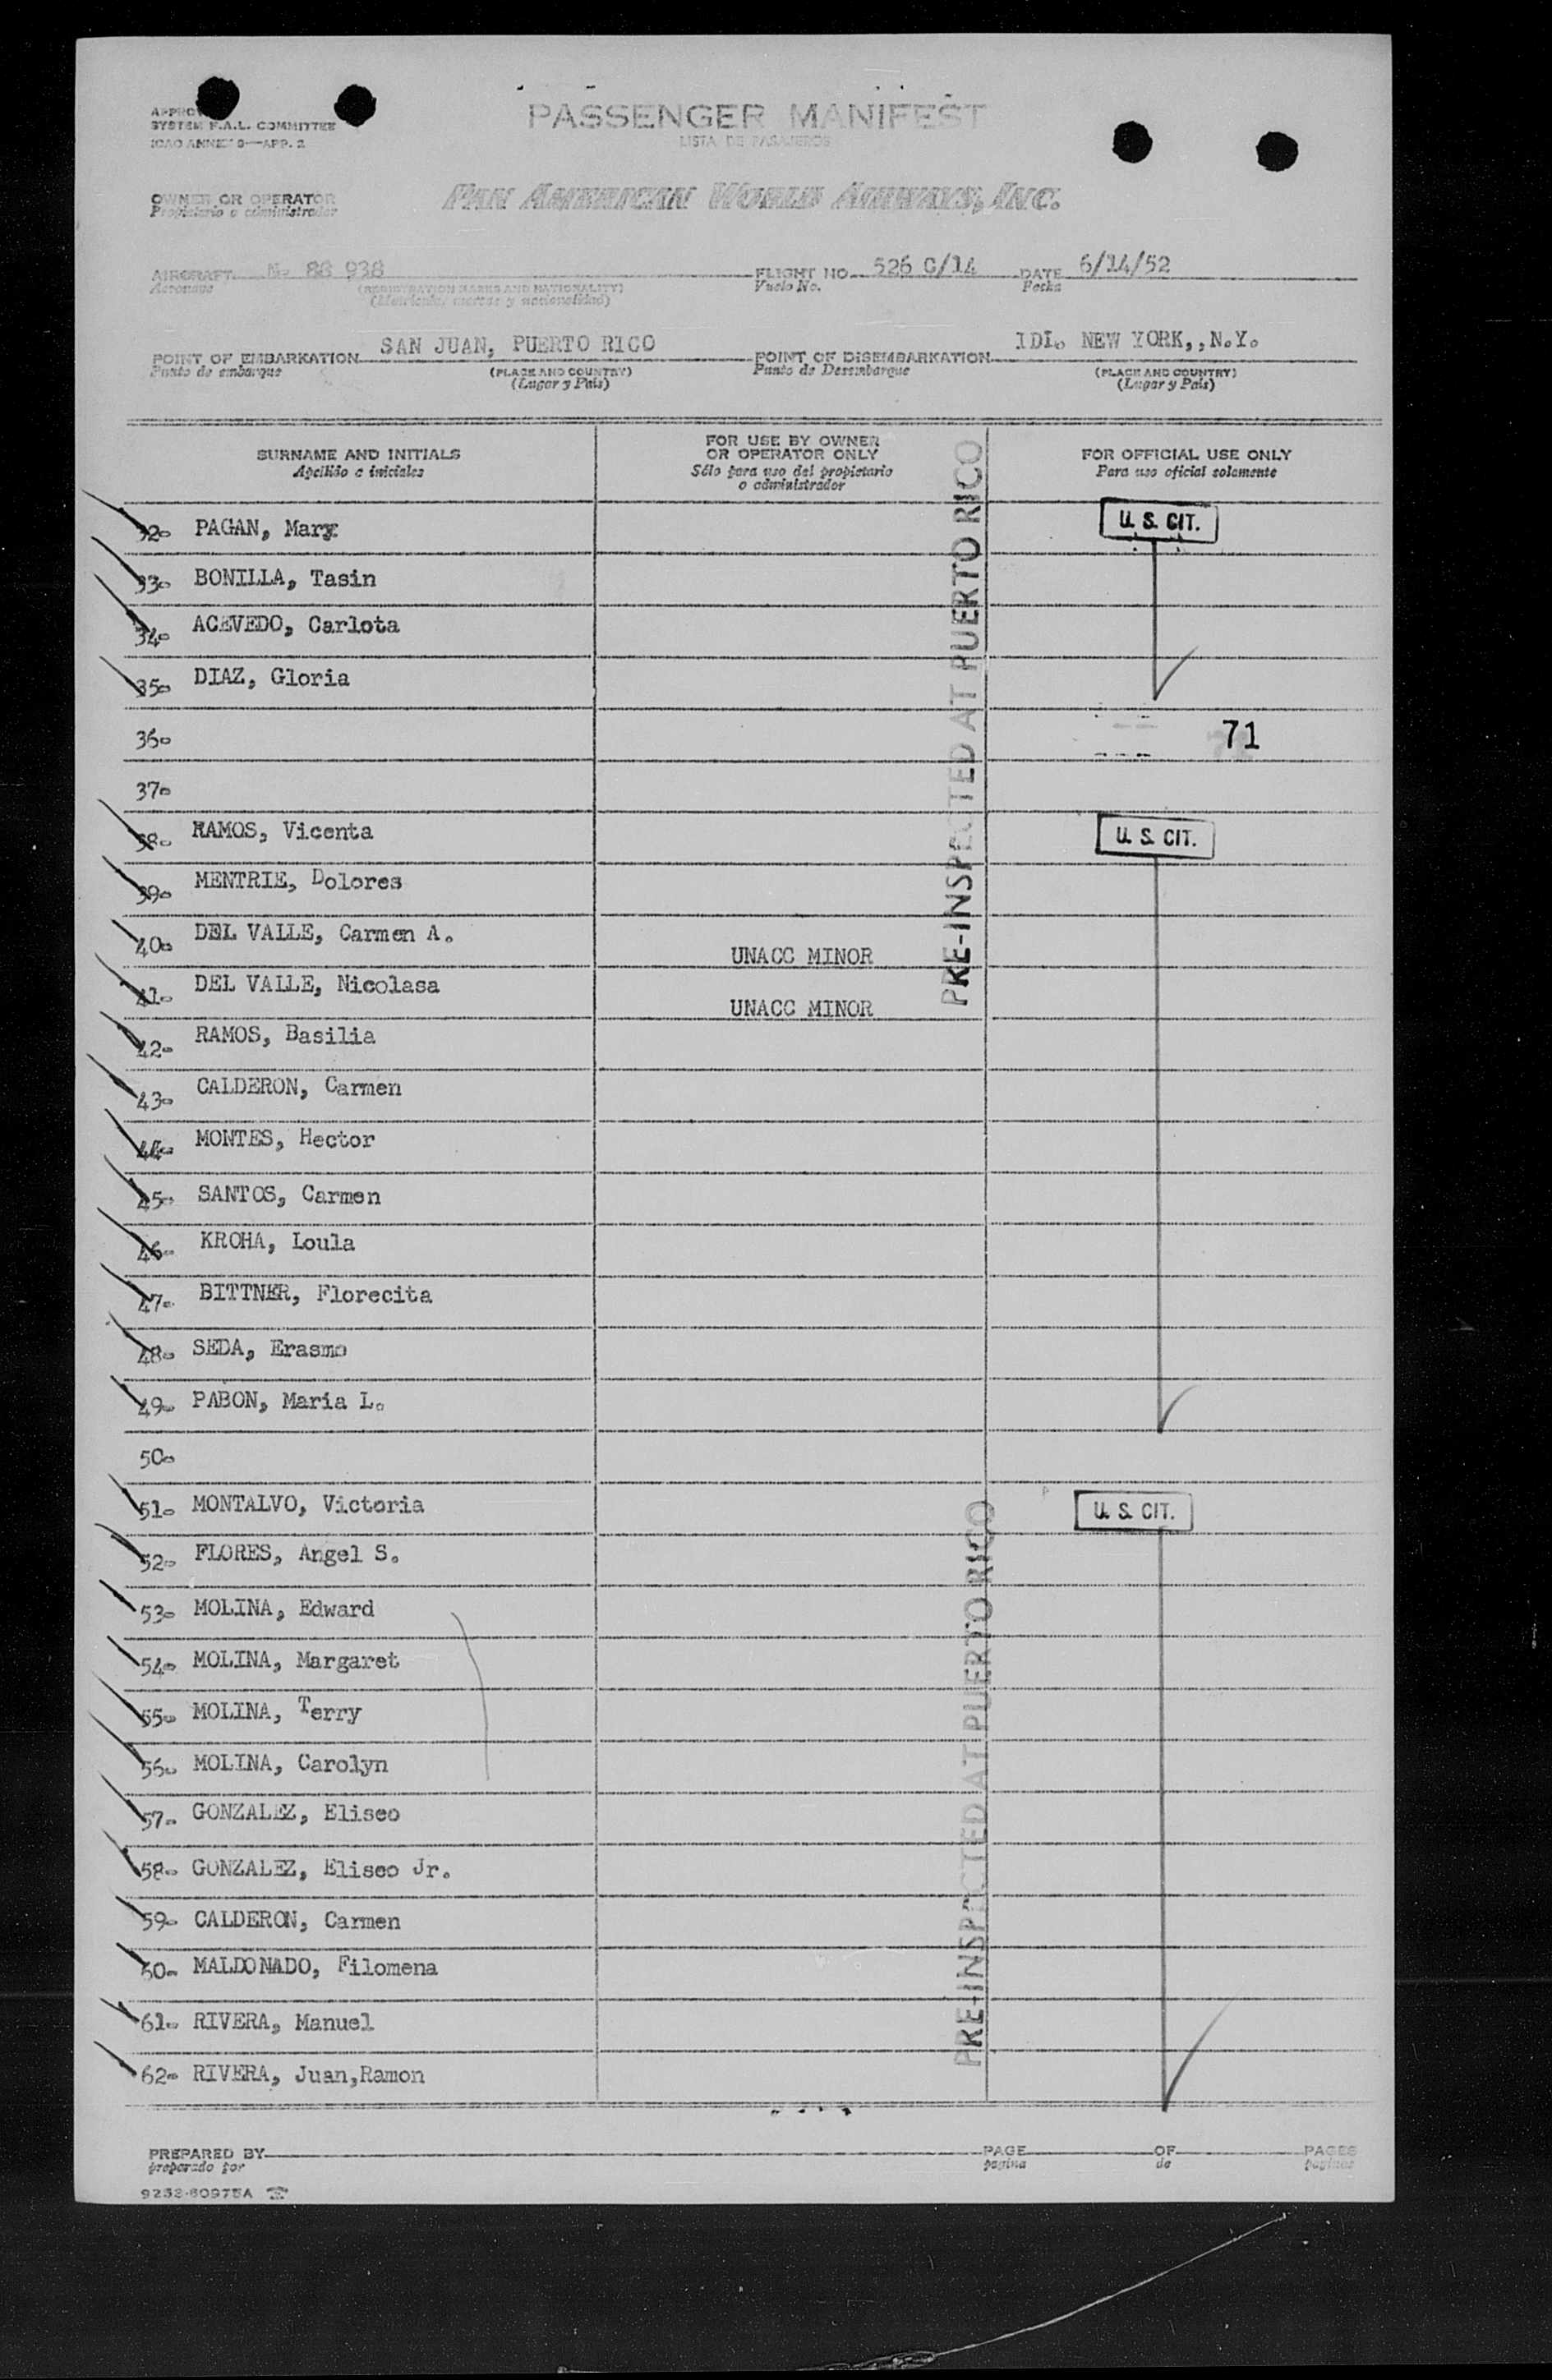 PASSENGER MANIFEST
LISTA DE PASAJEROS
SYSTEM F.A.L. COMMITTEE
ICAO ANNEX 9—APP. 2
OWNER OR OPERATOR
Propietario o administrador
PAN AMERICAN WORLD AIRWAYS, INC.
AIRCRAFT N- 88 938 FLIGHT NO. 526 G/14 DATE 6/14/52
Aeronave (REGISTRATION MARKS AND NATIONALITY) Vuelo No. Fecha
(Matrícula, marcas y nacionalidad)
POINT OF EMBARKATION SAN JUAN, PUERTO RICO POINT OF DISEMBARKATION IDL. NEW YORK,,N.Y.
Punto de embarque (PLACE AND COUNTRY) Punto de Desembarque (PLACE AND COUNTRY)
(Lugar y País) (Lugar y País)
SURNAME AND INITIALS
Apellido e iniciales
FOR USE BY OWNER
OR OPERATOR ONLY
Sólo para uso del propietario
o administrador
FOR OFFICIAL USE ONLY
Para uso oficial solamente
PRE-INSPECTED AT PUERTO RICO
32- PAGAN, Mary U. S. CIT.
33- BONILLA, Tasin
34- ACEVEDO, Carlota
35- DIAZ, Gloria
36- 71
37-
38- RAMOS, Vicenta U. S. CIT.
39- MENTRIE, Dolores
40- DEL VALLE, Carmen A. UNACC MINOR
41- DEL VALLE, Nicolasa UNACC MINOR
42- RAMOS, Basilia
43- CALDERON, Carmen
44- MONTES, Hector
45- SANTOS, Carmen
46- KROHA, Loula
47- BITTNER, Florecita
48- SEDA, Erasmo
49- PABON, Maria L.
50-
51- MONTALVO, Victoria U. S. CIT.
52- FLORES, Angel S.
53- MOLINA, Edward
54- MOLINA, Margaret
55- MOLINA, Terry
56- MOLINA, Carolyn
57- GONZALEZ, Eliseo
58- GONZALEZ, Eliseo Jr.
59- CALDERON, Carmen
60- MALDONADO, Filomena
61- RIVERA, Manuel
62- RIVERA, Juan,Ramon
PRE-INSPECTED AT PUERTO RICO
PREPARED BY PAGE OF PAGES
preparado por pagina de paginas